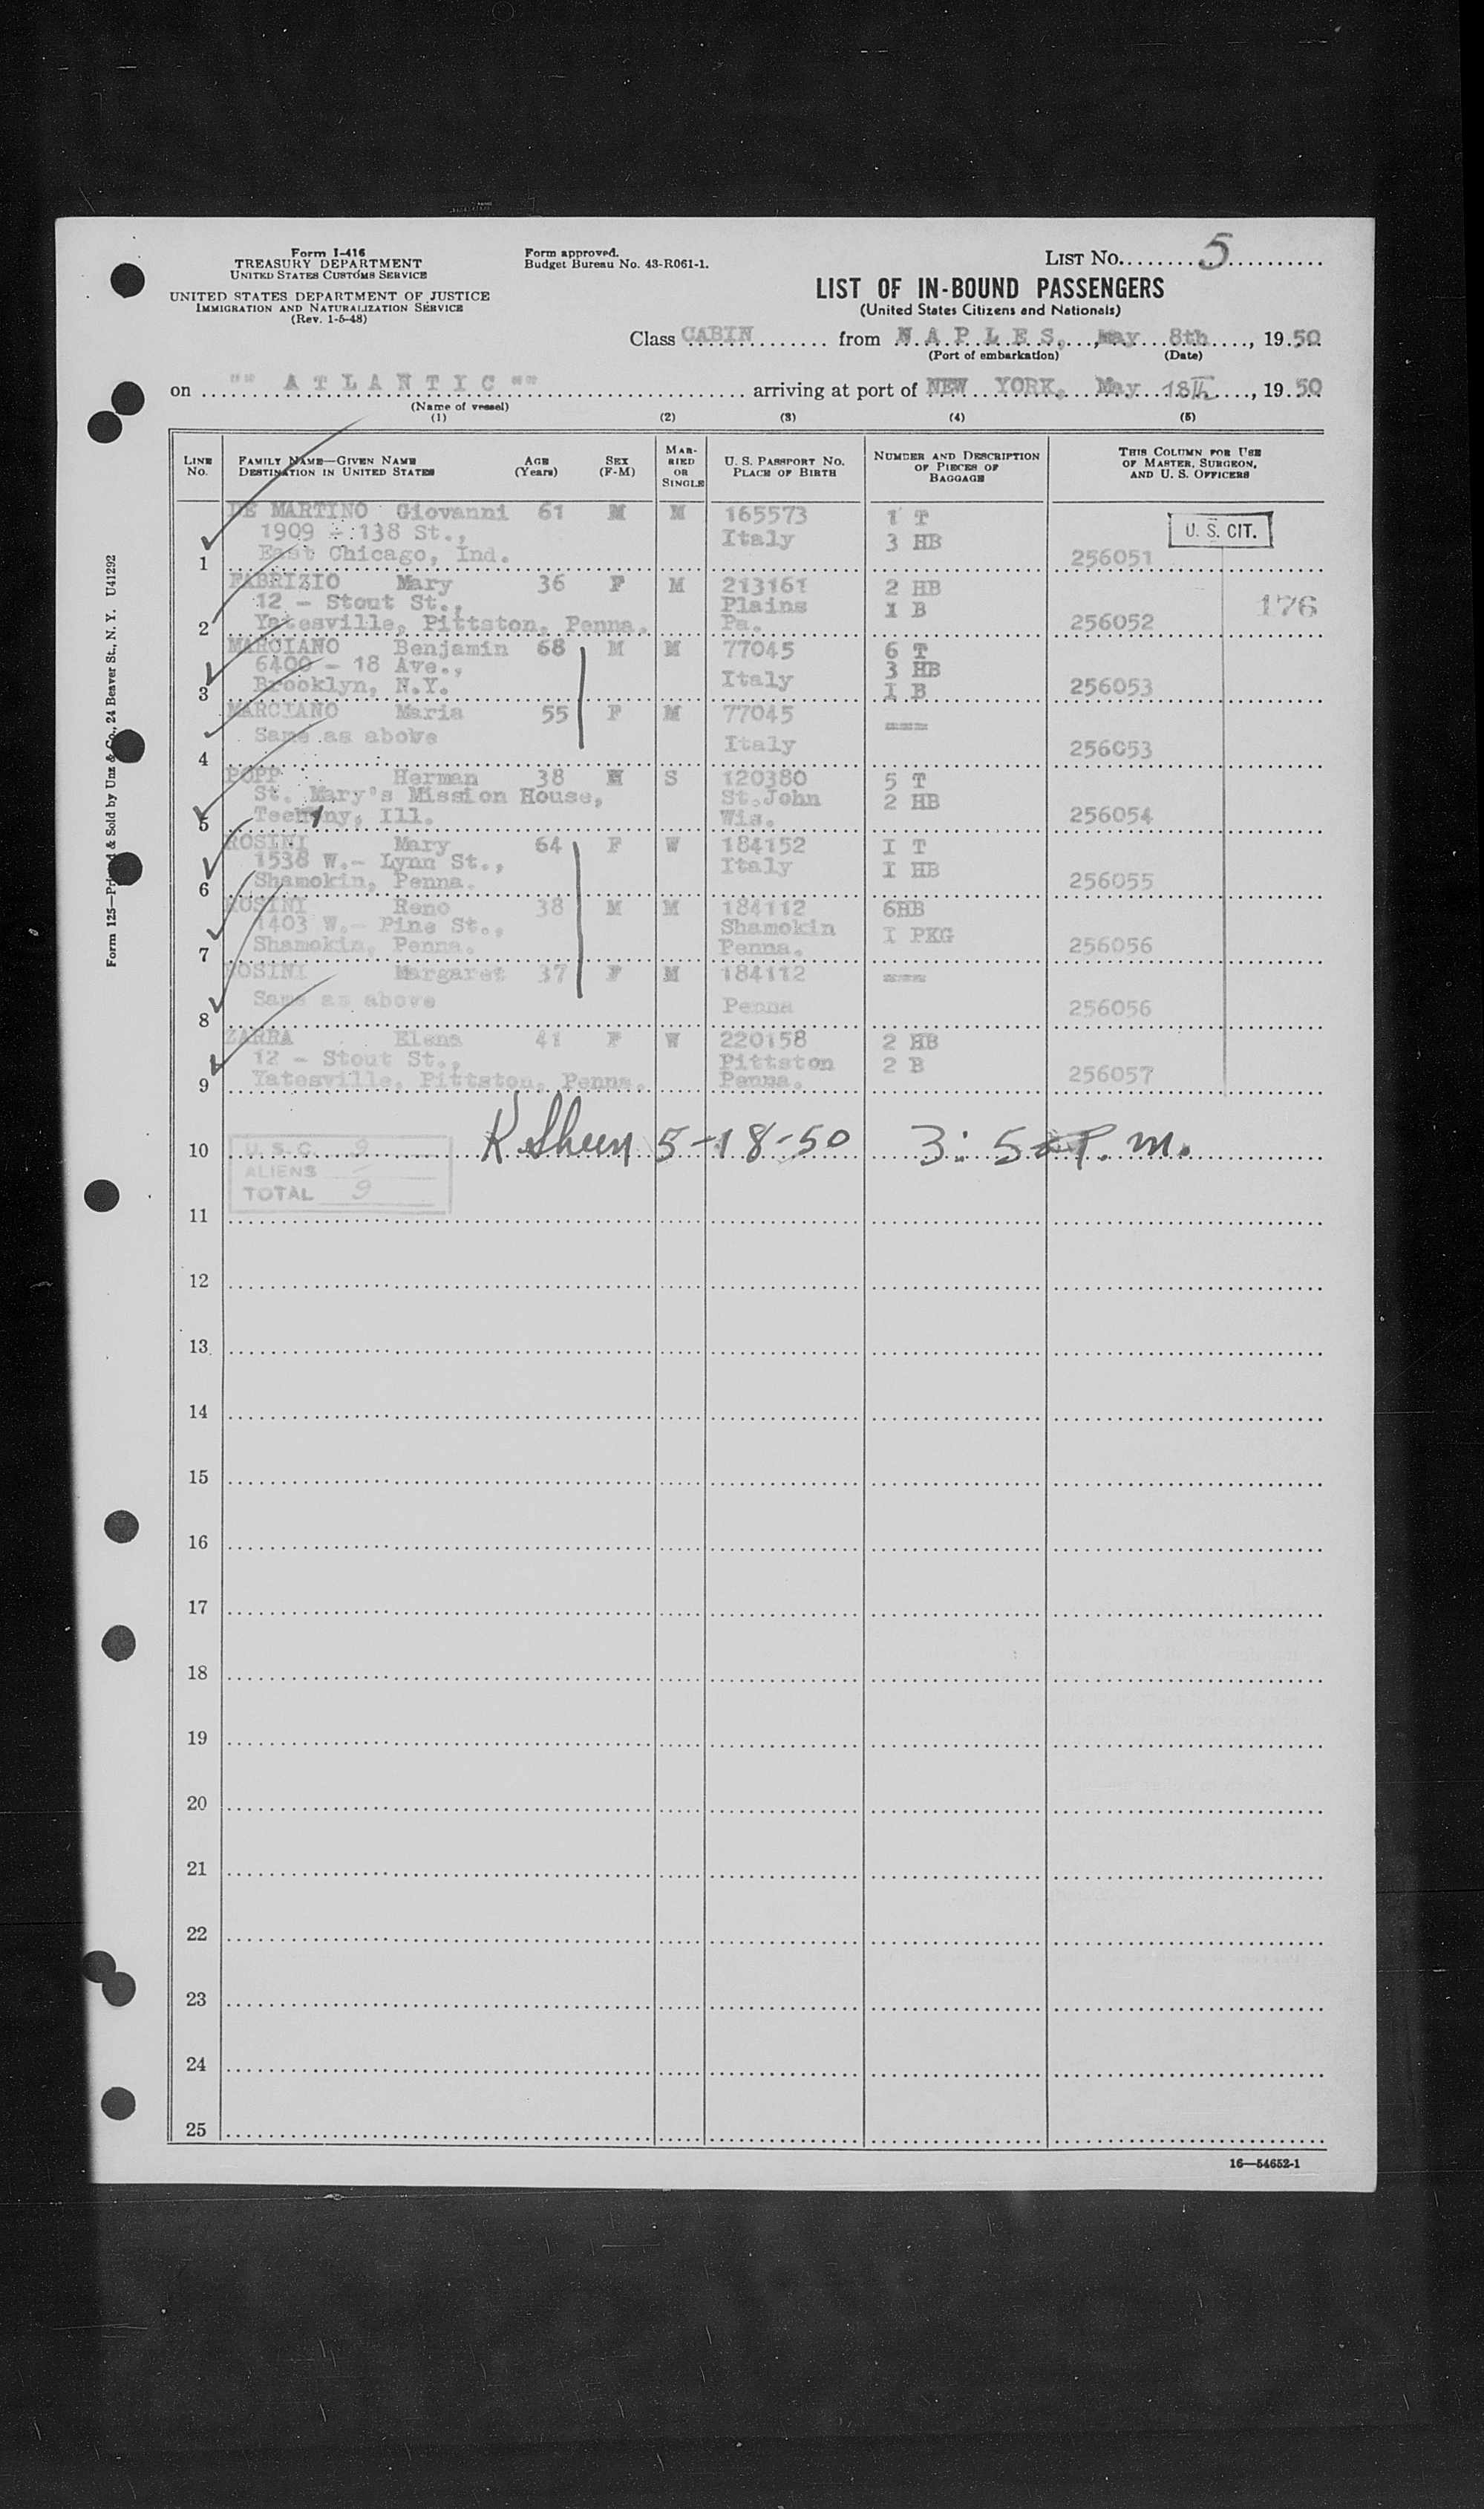 Form I-416
TREASURY DEPARTMENT
UNITED STATES CUSTOMS SERVICE
UNITED STATES DEPARTMENT OF JUSTICE
IMMIGRATION AND NATURALIZATION SERVICE
(Rev. 1-5-48)
Form approved.
Budget Bureau No. 43-R061-1.
LIST No. 5
LIST OF IN-BOUND PASSENGERS
(United States Citizens and Nationals)
Class CABIN from N A P L E S, May 8th, 1950
(Port of embarkation) (Date)
on "" A T L A N T I C "" arriving at port of NEW YORK, May 18th, 1950
(Name of vessel)
(1) (2) (3) (4) (5)
LINE No. FAMILY NAME—GIVEN NAME DESTINATION IN UNITED STATES AGE (Years) SEX (F-M) MARRIED OR SINGLE U. S. PASSPORT NO. PLACE OF BIRTH NUMBER AND DESCRIPTION OF PIECES OF BAGGAGE THIS COLUMN FOR USE OF MASTER, SURGEON, AND U. S. OFFICERS
DE MARTINO Giovanni 61 M M 165573 1 T
1909 - 138 St., Italy 3 HB U. S. CIT.
1 East Chicago, Ind. 256051
FABRIZIO Mary 36 F M 213161 2 HB
12 - Stout St., Plains 1 B 176
2 Yatesville, Pittston, Penna. Pa. 256052
MARCIANO Benjamin 68 M M 77045 6 T
6400 - 18 Ave., 3 HB
3 Brooklyn, N.Y. Italy 1 B 256053
MARCIANO Maria 55 F M 77045 ----
4 Same as above Italy 256053
POPP Herman 38 M S 120380 5 T
St. Mary's Mission House, St.John 2 HB
5 Techny, Ill. Wis. 256054
ROSINI Mary 64 F W 184152 I T
1538 W.- Lynn St., Italy I HB
6 Shamokin, Penna. 256055
ROSINI Reno 38 M M 184112 6HB
1403 W.- Pine St., Shamokin I PKG
7 Shamokin, Penna. Penna. 256056
ROSINI Margaret 37 F M 184112 ----
8 Same as above Penna 256056
ZARRA Elena 41 F W 220158 2 HB
12 - Stout St., Pittston 2 B
9 Yatesville, Pittston, Penna. Penna. 256057
10 U. S. C. 9 5-18-50 P.m.
ALIENS
TOTAL 9
11
12
13
14
15
16
17
18
19
20
21
22
23
24
25
16—54652-1
Form 125—Printed & Sold by Unz & Co., 24 Beaver St., N. Y. U41292